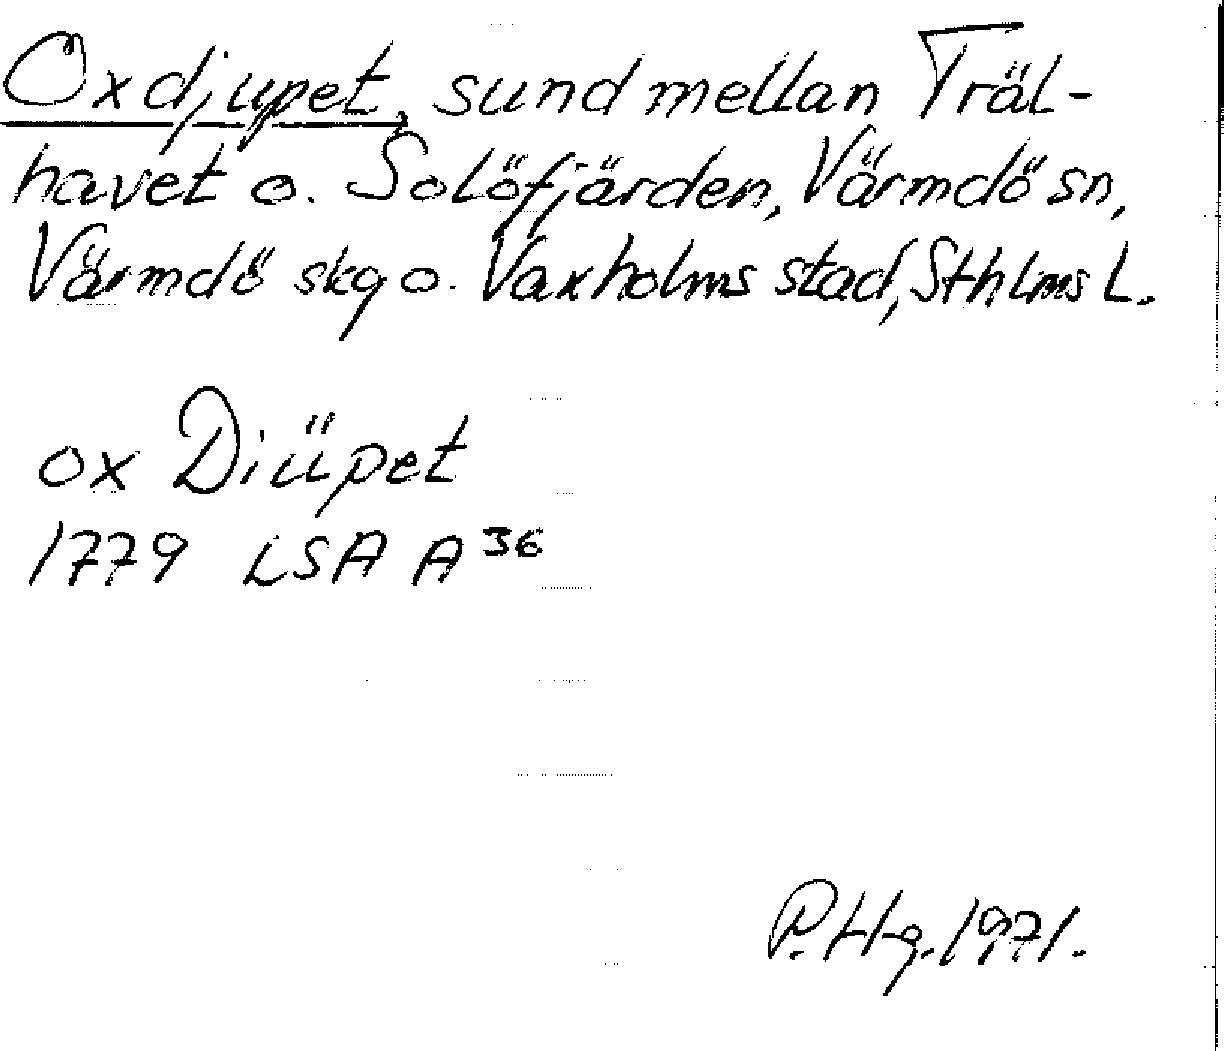 Oxdjupet, sund mellan Träl-
havet o. Solöfjärden, Värmdö sn,
Värmdö skg o. Vaxholms stad, Sthlms L.
ox Diüpet
1779 LSA A 36
P.Hg. 1971.